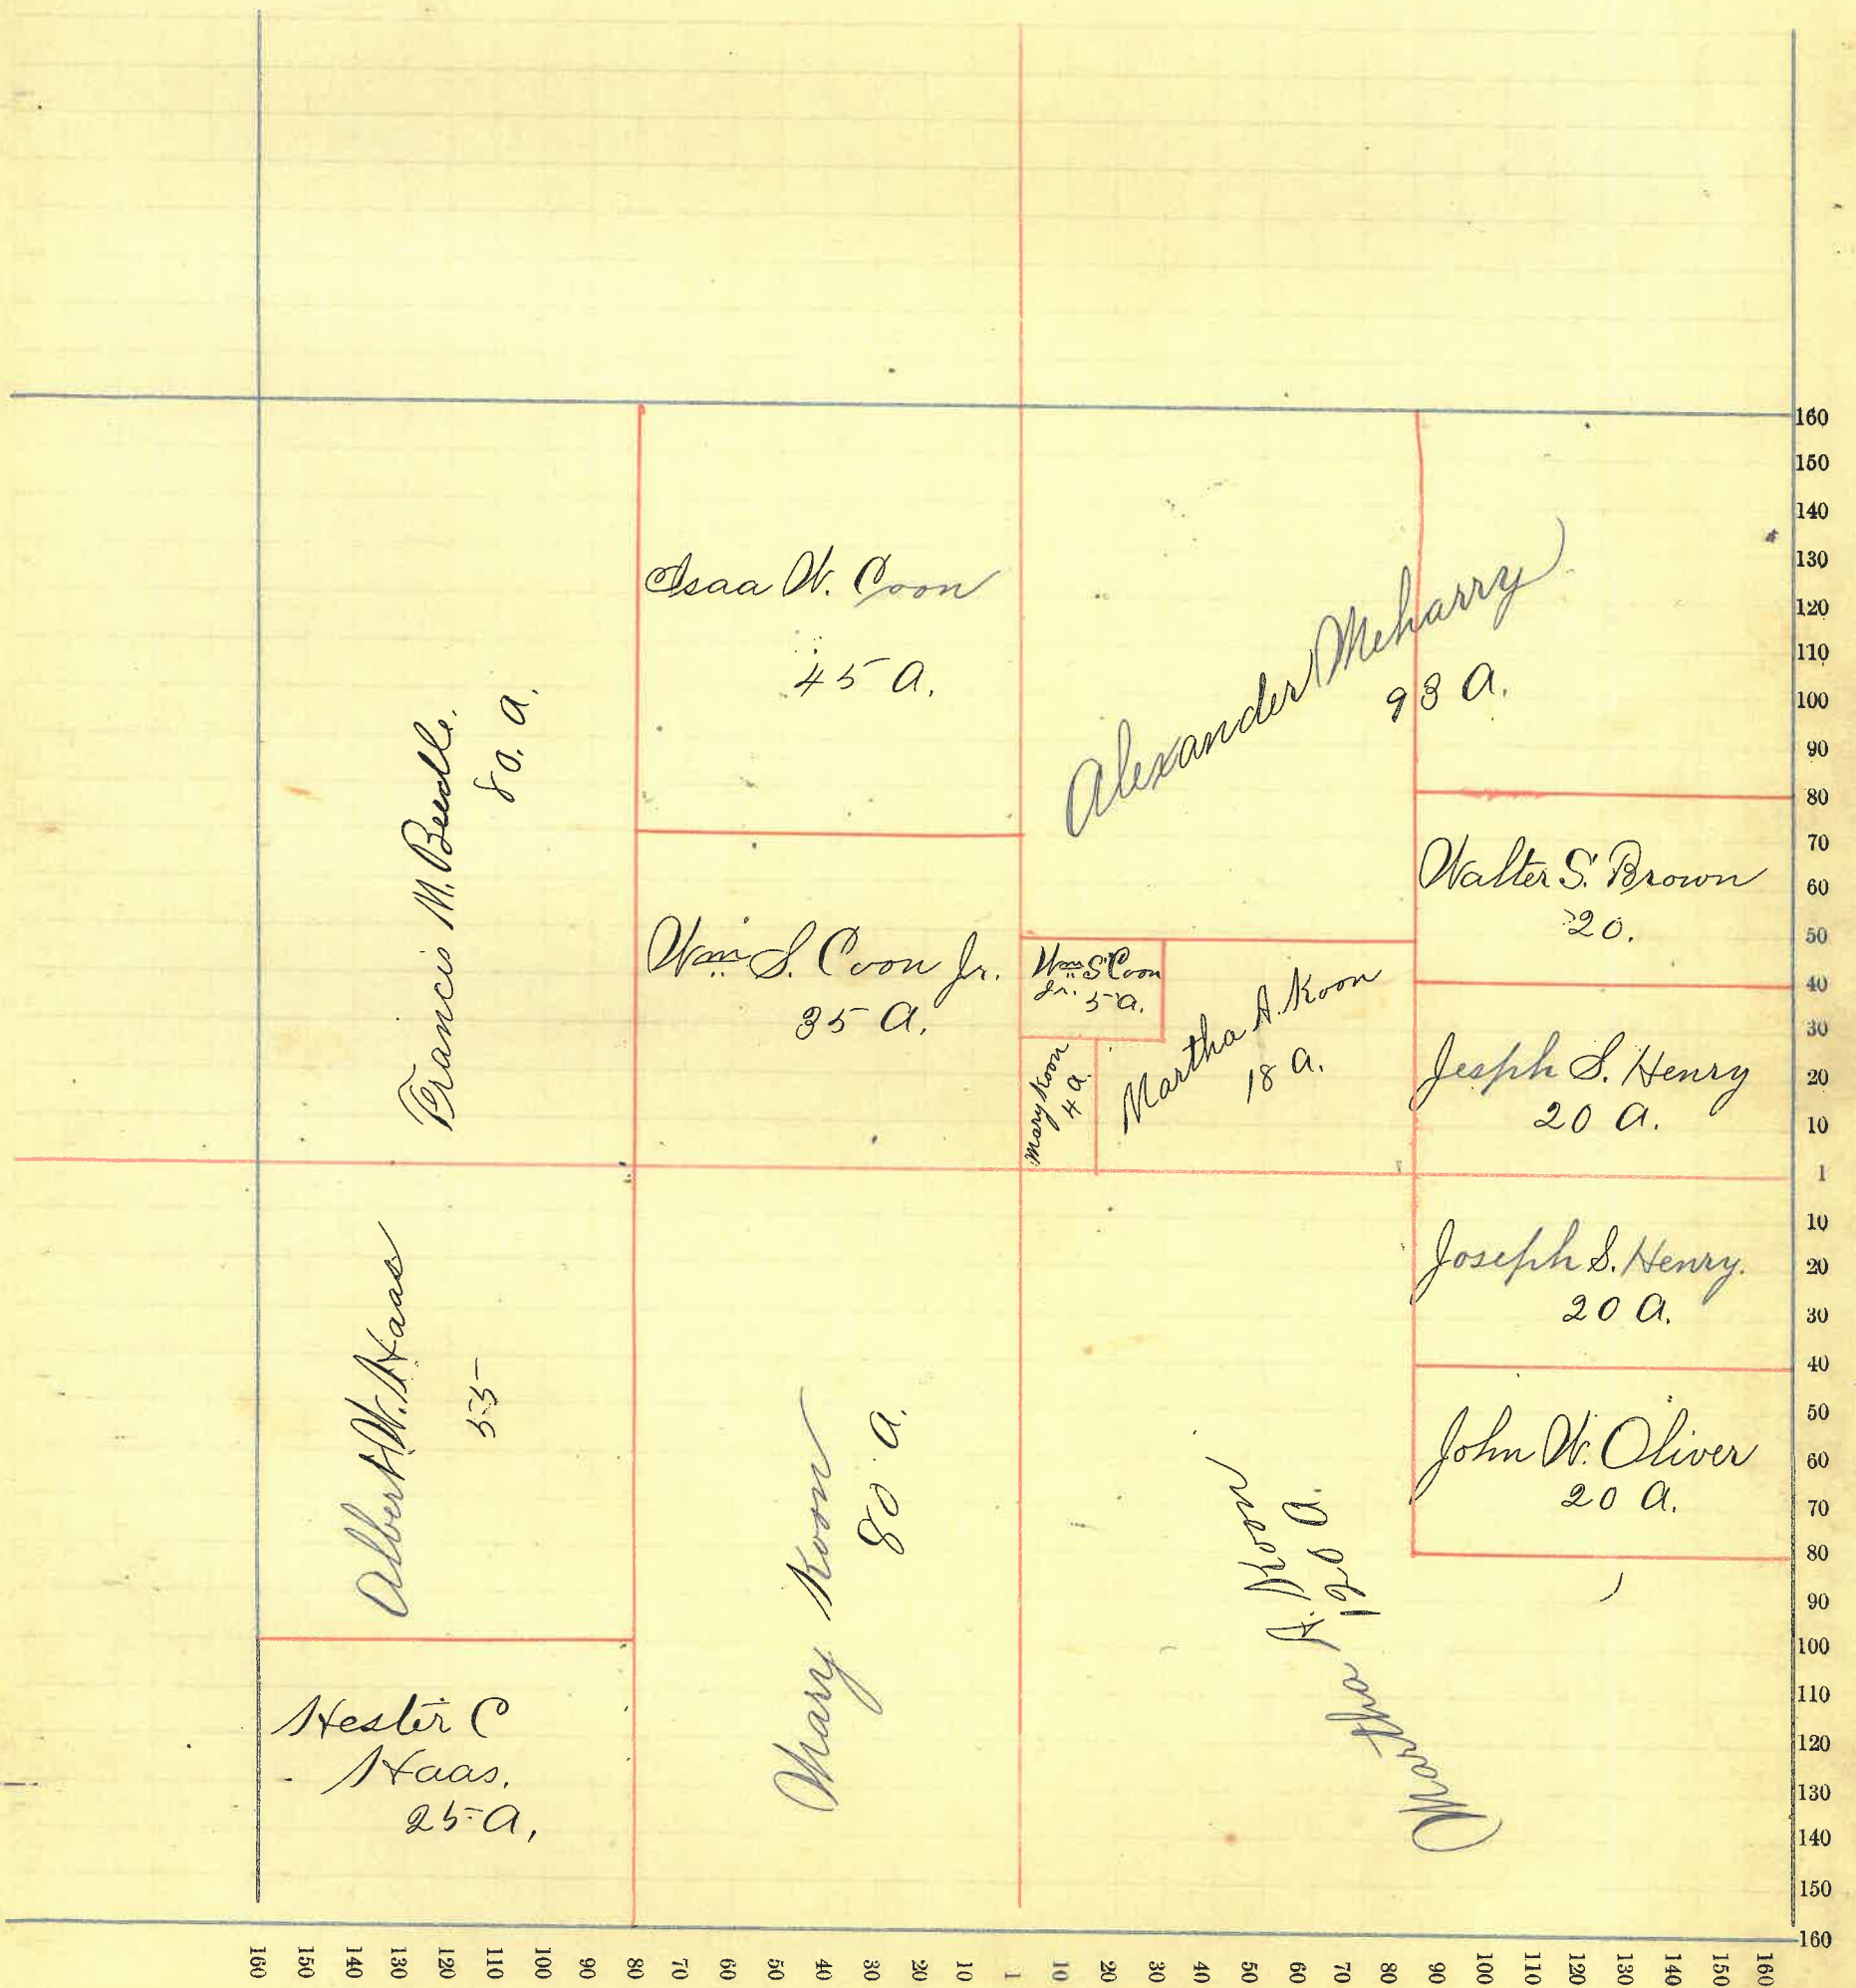 Isaa W. Coon
45 A.
Alexander Meharry
93 A.
Francis M. Beedle.
80. A.
Wm S. Coon Jr.
35 A.
Wm S Coon
Jr. 5 A.
Mary Koon
4 A.
Martha A. Koon
18 A.
Walter S. Brown
20.
Jesph S. Henry
20 A.
Joseph S. Henry.
20 A.
John W. Oliver
20 A.
Albert W. Haas
55
Hester C
Haas.
25 A,
Mary Koon
80 A.
Martha A. Koon
120 A.
160
150
140
130
120
110
100
90
80
70
60
50
40
30
20
10
1
10
20
30
40
50
60
70
80
90
100
110
120
130
140
150
160
160 150 140 130 120 110 100 90 80 70 60 50 40 30 20 10 1 10 20 30 40 50 60 70 80 90 100 110 120 130 140 150 160